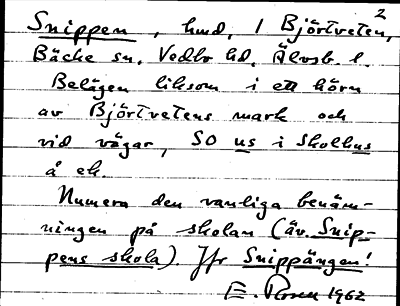 2
Snippen, hmd, 1 Björtveten,
Bäcke sn, Vedbo hd, Älvsb. l.
Belägen liksom i ett hörn
av Björtvetens mark och
vid vägar, SO us i Skolhus
å ek.
Numera den vanliga benäm-
ningen på skolan (äv. Snip-
pens skola). Jfr Snippängen!
E. Rosen 1962